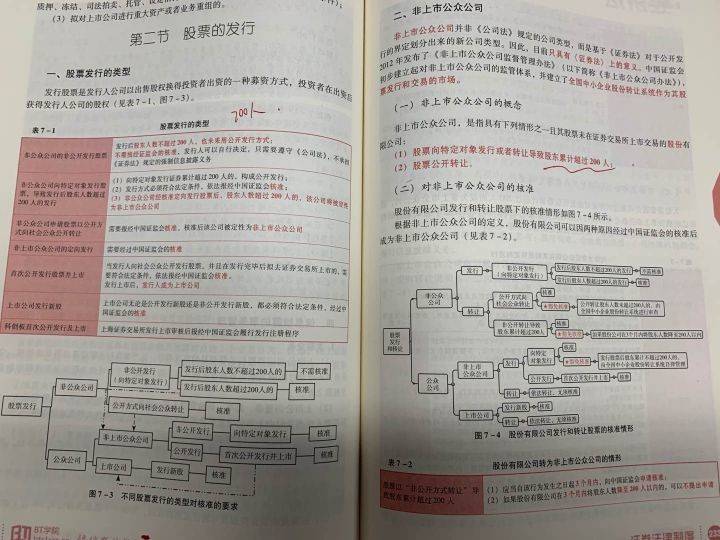 质押、冻结、司法拍卖、托管、设定信
（3）拟对上市公司进行重大资产或者业务重组的。
第二节 股票的发行
一、股票发行的类型
发行股票是发行人公司以出售股权换得投资者出资的一种募资方式，投资者在出资后
获得发行人公司的股权（见表7-1、图7-3）。
200人
表 7-1 股票发行的类型
非公众公司的非公开发行股票
发行后股东人数不超过200人，也未采用公开发行方式；
不需提经证监会的核准，发行人可以自行决定，只需要遵守《公司法》，不承担
《证券法》规定的强制信息披露义务
非公众公司向特定对象发行股
票，导致发行后股东人数超过
200人的发行
（1）向特定对象发行证券累计超过200人的，构成公开发行；
（2）发行方式必须符合法定条件，依法报经中国证监会核准；
（3）非公众公司经核准定向发行股票后，股东人数超过200人的，该公司将被定性
为非上市公众公司
非公众公司申请股票以公开方
式向社会公众公开转让
需要报经中国证监会核准，核准后该公司被定性为非上市公众公司
非上市公众公司的定向发行
需要经过中国证监会的核准
首次公开发行股票并上市
当发行人向社会公众公开发行股票，并且在发行完毕后拟去证券交易所上市的，需
要符合法定条件，依法报经中国证监会核准。
发行上市后，发行人成为上市公司
上市公司发行新股
上市公司无论是公开发行新股还是非公开发行新股，都必须符合法定条件，经过中
国证监会的核准
科创板首次公开发行及上市
上海证券交易所发行上市审核后报经中国证监会履行发行注册程序
股票发行
非公众公司
非公开发行
（向特定对象发行）
发行后股东人数不超过200人的
不需核准
发行后股东人数超过200人的
核准
公开方式向社会公众转让
核准
公众公司
非上市公众公司
非公开发行
向特定对象发行
核准
公开发行
首次公开发行并上市
核准
上市公司
发行新股
核准
图 7-3 不同股票发行的类型对核准的要求
BT学院
二、非上市公众公司
非上市公众公司并非《公司法》规定的公司类型，而是基于《证券法》对于公开发
行的界定划分出来的新公司类型。因此，目前只具有（证券法）上的意义。中国证监会
2012年发布了《非上市公众公司监督管理办法》（以下简称《非上市公众公司办法》），
初步建立起对非上市公众公司的监管体系，并建立了全国中小企业股份转让系统作为其股
票发行和交易的市场。
（一）非上市公众公司的概念
非上市公众公司，是指具有下列情形之一且其股票未在证券交易所上市交易的股份有
限公司：
（1）股票向特定对象发行或者转让导致股东累计超过200人；
（2）股票公开转让。
（二）对非上市公众公司的核准
股份有限公司发行和转让股票下的核准情形如图7-4所示。
根据非上市公众公司的定义，股份有限公司可以因两种原因经过中国证监会的核准后
成为非上市公众公司（见表7-2）。
股票
发行
和转让
非公众
公司
发行
非公开发行
（向特定对象发行）
发行后股东人数不超过200人的发行
不需核准
发行后股东人数超过200人的发行
核准
转让
公开方式向
社会公众转让
核准
★豁免核准
公开转让股东人数未超过200人的，由
全国中小企业股份转让系统进行审查
非公开转让导致
股东累计超200人
核准
★豁免核准
如果股份公司在3个月内将股东人数降至200人以内
公众
公司
非上市
公众公司
发行
向特定
对象发行
核准
★豁免核准
发行股票后股东累计不超过200人的，
由全国中小企业股份转让系统自律管理
公开发行
首次公开发行并上市
核准
转让
依法转让，无须核准
上市公司
发行新股
核准
转让
依法转让，无须核准
图 7-4 股份有限公司发行和转让股票的核准情形
表 7-2 股份有限公司转为非上市公众公司的情形
股票以“非公开方式转让”导
致股东累计超过200人
（1）应当自该行为发生之日起3个月内，向中国证监会申请核准；
（2）如果股份有限公司在3个月内将股东人数降至200人以内的，可以不提出申请